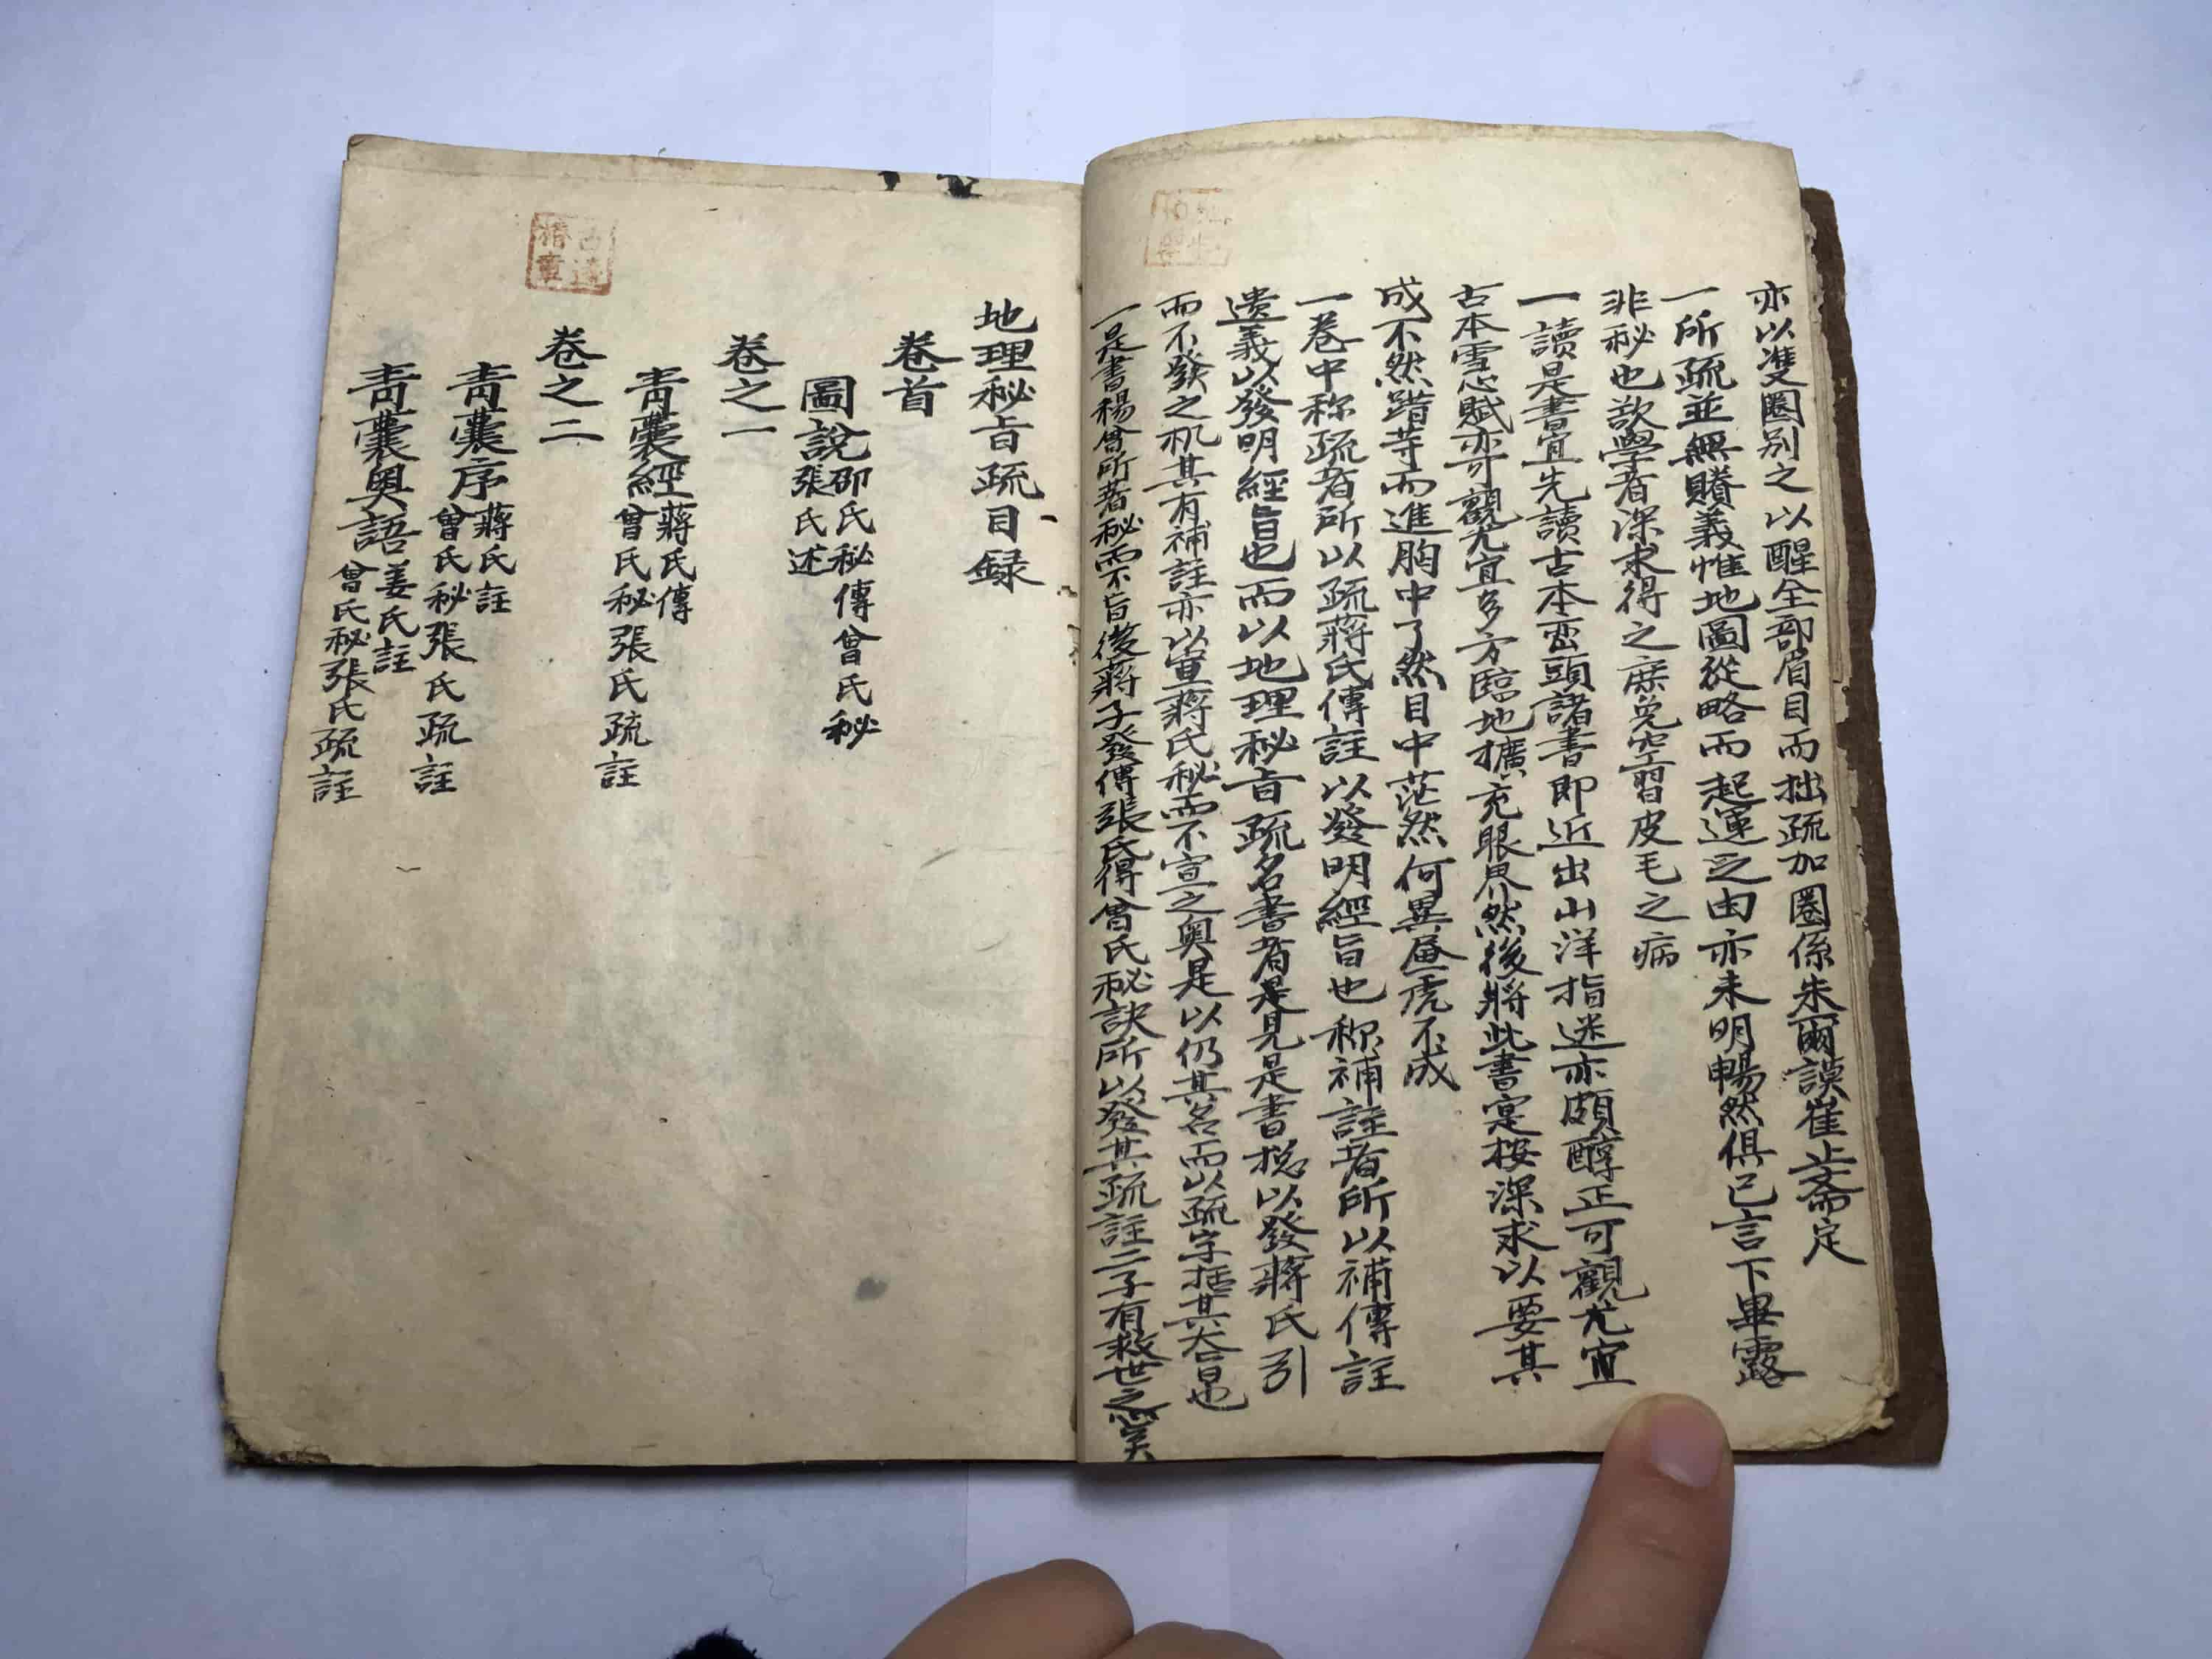 亦以雙圈别之以醒全部眉目而拙疏加圈係朱爾謨崔止齋定
一所疏並無賸義惟地圖從略而起運之由亦未明暢然俱已言下畢露
非秘也欲學者深求得之庶免空習皮毛之病
一讀是書宜先讀古本巒頭諸書即近出山洋指迷亦頗醇正可觀尤宜
古本雪心賦亦可觀尤宜多方臨地擴充眼界然後將此書寔按深求以要其
成不然躐等而進胸中了然目中茫然何異畫虎不成
一卷中称疏者所以疏蔣氏傳註以發明經旨也称補註者所以補傳註
遗義以發明經旨也而以地理秘旨疏名書者是見是書揔以發蔣氏引
而不發之机其有補註亦以宣蔣氏秘而不宣之奥是以仍其名而以疏字括其大旨也
一是書楊曾所著秘而不旨後蔣子發傳張氏得曾氏秘訣所以發其疏註二子有救世之心矣
地理秘旨疏目録
卷首
圖説 邵氏秘傳曾氏秘
張氏述
卷之一
青囊經 蔣氏傳
曾氏秘張氏疏註
卷之二
青囊序 蔣氏註
曾氏秘張氏疏註
青囊奥語 姜氏註
曾氏秘張氏疏註